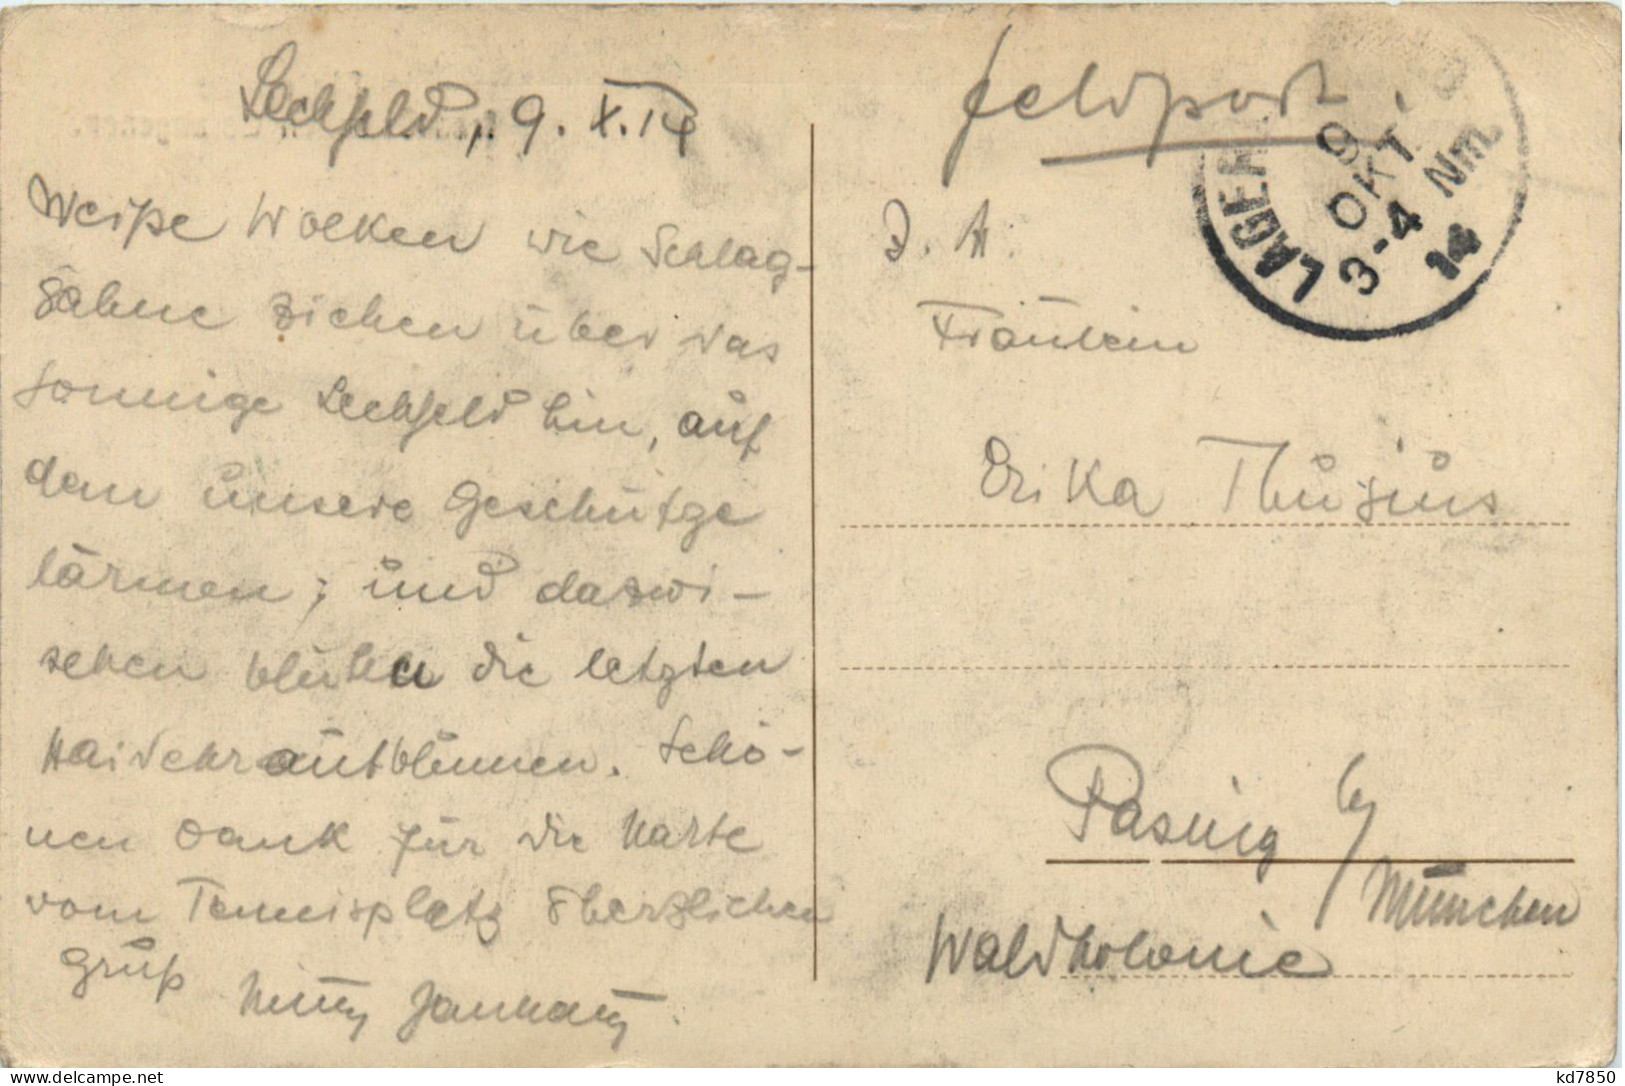 Lechfeld, 9. X. 14
Weiße Wolken wie Schlag-
sahne ziehen über das
sonnige Lechfeld hin, auf
dem unsere Geschütze
lärmen; und dazwi-
schen blühen die letzten
Haidekrautblumen. Schö-
nen Dank für die Karte
vom Tennisplatz & herzlichen
Gruß
Feldpost.
LAGER
9
OKT.
3-4 Nm.
14
Fräulein
Erika
Pasing b/
München
Waldkolonie
kd7850